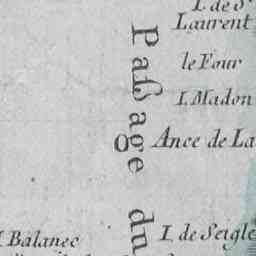 I. de S^t
Laurent
le Four
I. Madon
Ance de La
Paſsage du
I. de Seigle
I Balanec